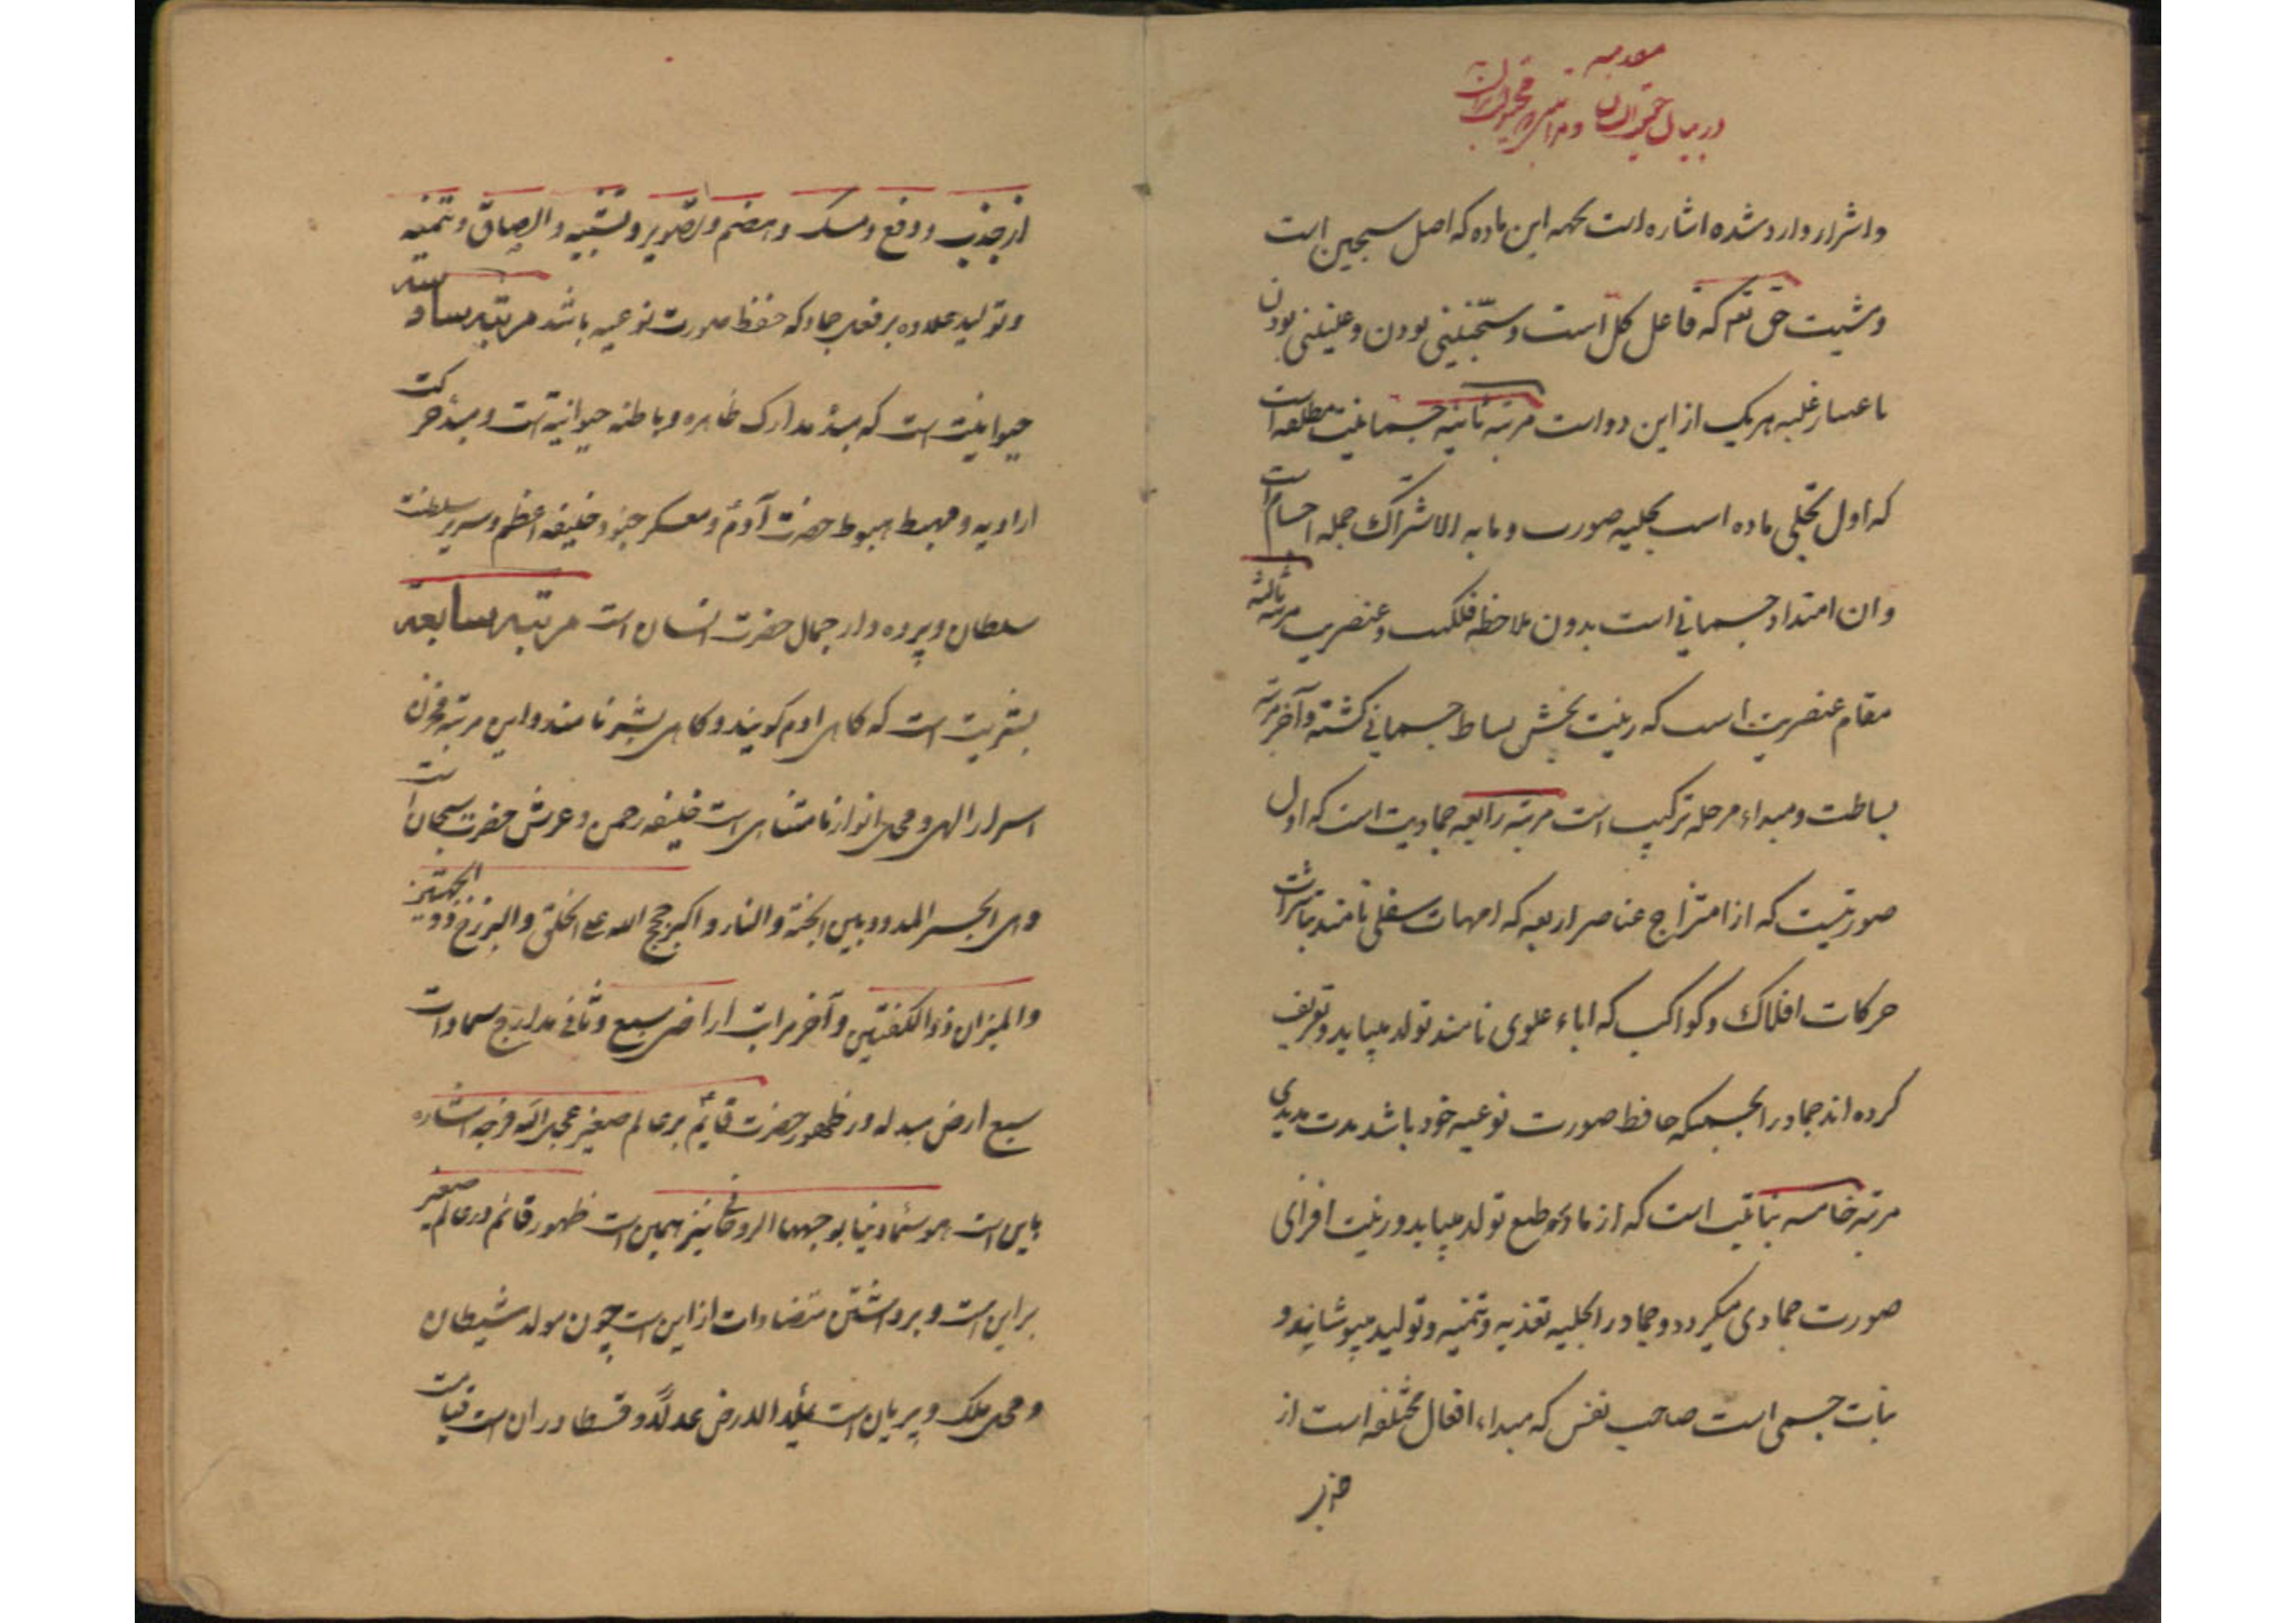 مقدمه
در بیان حقیقت انسان و مراتب
واشرار وارد شده اشاره است بهمه این ماده که اصل سجین است
ومشیت حق تعه که فاعل کل است وسجینی بودن وعلیینی بودن
باعتبار غلبه هر یک از این دو است مرتبه ثانیه جسمانیت مطلقه است
که اول تجلی ماده است بحلیه صورت وما به الاشتراک جمله اجسام است
وان امتداد جسمانی است بدون ملاحظه فلکیت وعنصریت مرتبه ثالثه
مقام عنصریت است که زینت بخش بساط جسمانی کشته وآخر مرتبه
بساطت ومبداء مرحله ترکیب است مرتبه رابعه جمادیت است که اول
صورتیست که از امتزاج عناصر اربعه که امهات سفلی نامند بتاثیرات
حرکات افلاک وکواکب که اباء علوی نامند تولد مییابد وتعریف
کرده اند جماد را بجسمیکه حافظ صورت نوعیه خود باشد مدت مدیدی
مرتبه خامسه نباتیت است که از ماده طبع تولد مییابد وزینت افزای
صورت جمادی میکردد وجماد را بحلیه تغذیه وتنمیه وتولید میپوشاند و
نبات جسمی است صاحب نفس که مبداء افعال مختلفه است از
جذب
از جذب ودفع ومسک وهضم وتصویر وتشبیه والصاق وتنمیه
وتولید علاوه بر فعل جماد که حفظ صورت نوعیه باشد مرتبه سادسه
حیوانیت است که مبدء مدارک ظاهره وباطنه حیوانیة است ومبدء حرکت
ارادیه ومهبط هبوط حضرت آدم ومعسکر جنود خلیفه اعظم وسریر سلطنت
سلطان وپرده دار جمال حضرت انسان است مرتبه سابعه
بشریت است که کاهی ادم کویند وکاهی بشر نامند واین مرتبه مخزن
اسرار الهی ومحل انوار نامتناهی است خلیفه رحمن وعرش حضرت سبحان است
وهی الجسر الممدود بین الجنة والنار واکبر حجج الله علی الخلق والبرزخ ذو الجهتین
والمیزان ذو الکفتین وآخر مراتب اراضی سبع وثانی مدارج سماوات
سبع ارض مبدله در ظهور حضرت قایم بر عالم صغیر عجل الله فرجه اشاره
باین است نیز همین است ظهور قائم در عالم صغیر
بر این است وبرداشتن متضادات از این است چون مولد شیطان
ومحل ملک وپریان است یملاء الارض عدلا وقسطا در ان است قیامت